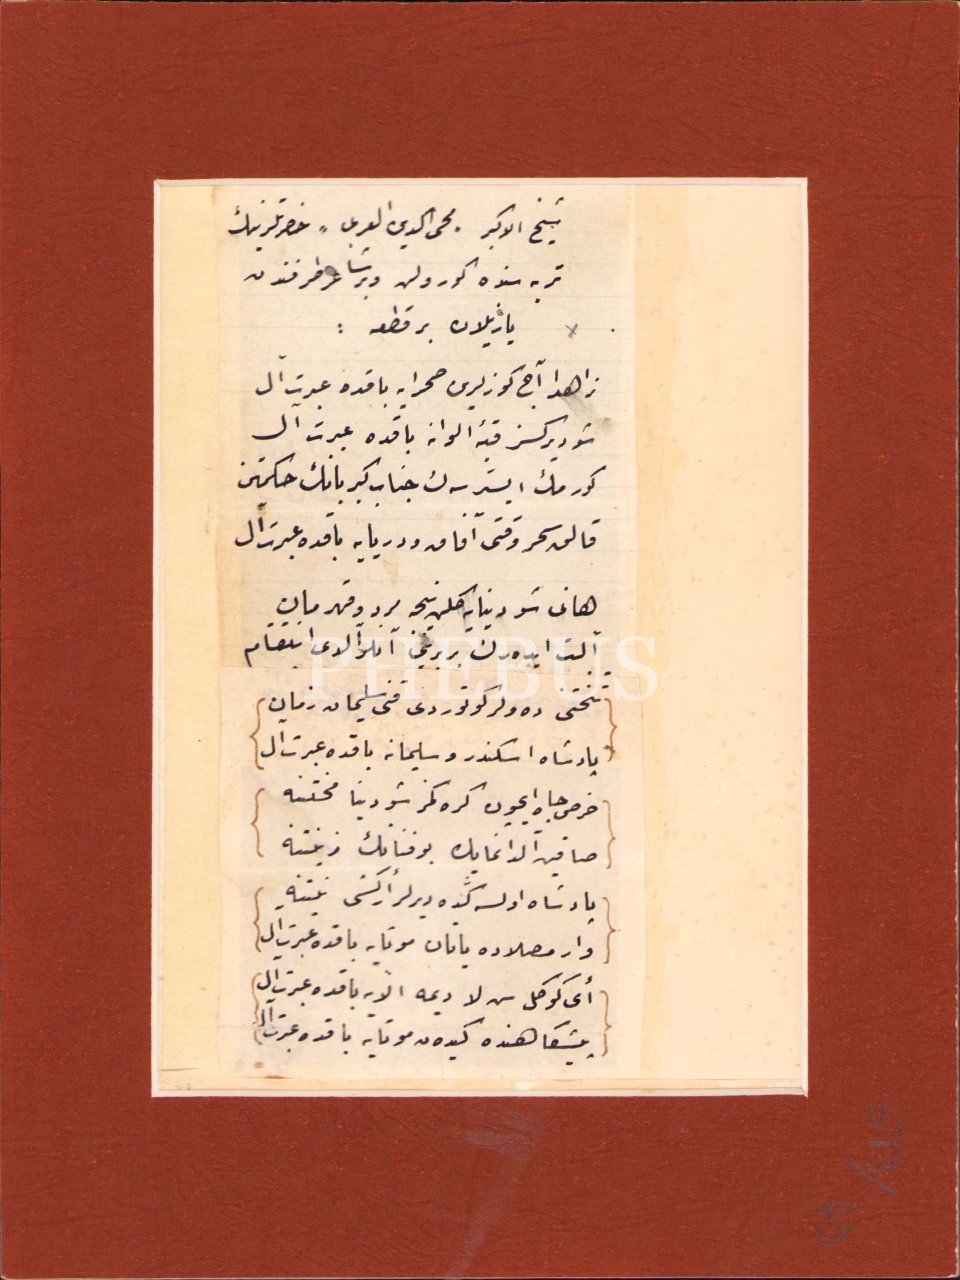 شیخ الاکبر. محی الدین العربی " حضرتلرینك
تربه سنده کورولن وبر شاعر طرفندن
یازیلان بر قطعه :
زاهدا آچ کوزلرین صحرایه باقده عبرت آل
شو دیرکسز قبهٔ الوانه باقده عبرت آل
کورمك ایسترسه ك جناب کبریانك حکمتن
قالق سحر وقتی آفاق و دریایه باقده عبرت آل
هانی شو دنیایه کلن نیجه مرد و قهرمان
آلت ایده رك بربرینی آنلر آلدی انتقام
تختنی ده ولر کوتوردی قنی سلیمان زمان
پادشاه اسکندر و سلیمانه باقده عبرت آل
حرص جاه ایچون کره کمز شو دنیا محنتنه
صاقین آلدانمایك بو فنانك زینتنه
پادشاه اولسه كده دیرلر أر کشی نیتنه
وار مصلاده یاتان موتایه باقده عبرت آل
أی کوکل سن لا دیمه الایه باقده عبرت آل
پیشکاهنده کیدن موتایه باقده عبرت آل
PHEBUS